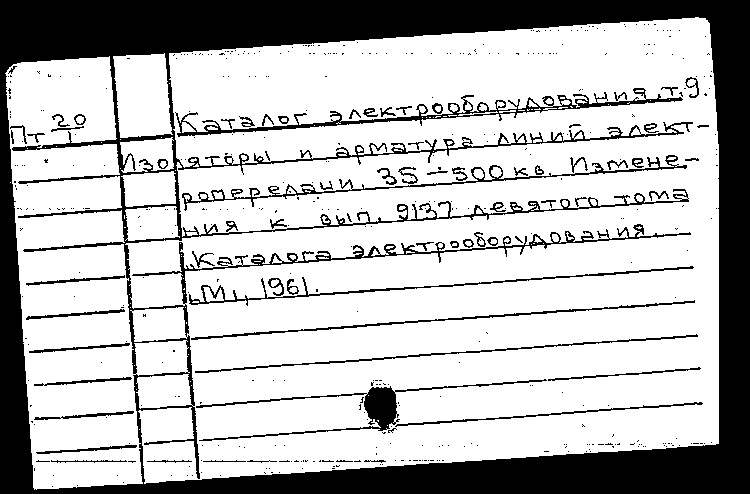 Пт 20/1
Каталог электрооборудования, т. 9.
Изоляторы и арматура линий элект-
ропередачи. 35-500 кв. Измене-
ния к вып. 9137 девятого тома
"Каталога электрооборудования.
М., 1961.